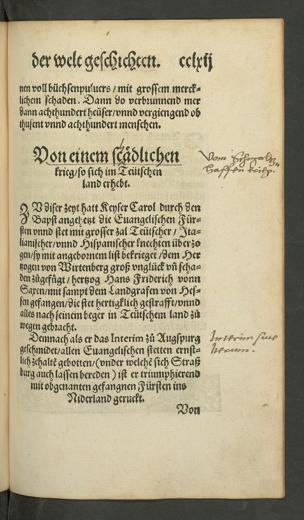 der welt geschichten. cclxij
nen voll büchsenpuluers / mit grossem merck-
lichem schaden. Dann do verbrunnend mer
dann achthundert heüser / vnnd vergiengend ob
thusent vnnd achthundert menschen.
Von einem schädlichen
krieg / so sich im Teütschen
land erhebt.
ZV diser zeyt hatt Keyser Carol durch den
Bapst angehetzt die Euangelischen Für-
sten vnnd stet mit grosser zal Teütscher / Ita-
lianischer / vnnd Hispanischer knechten überzo-
gen / sy mit angebornem list bekrieget / dem Her
tzogen von Wirtenberg groß vnglück vñ scha-
den zügefügt / hertzog Hans Friderich vonn
Saxen / mit sampt dem Landgrafen von Hes-
sen gefangen / die stet hertigklich gestrafft / vnnd
alles nach seinem beger in Teütschem land zů
wegen gebracht.
Demnach als er das Interim zů Augspurg
geschmidet / allen Euangelischen stetten ernst-
lich zehaltē gebotten / (vnder welchē sich Straß
burg auch lassen bereden) ist er triumphierend
mit obgenanten gefangnen Fürsten ins
Niderland geruckt.
Von
Vom
Interim